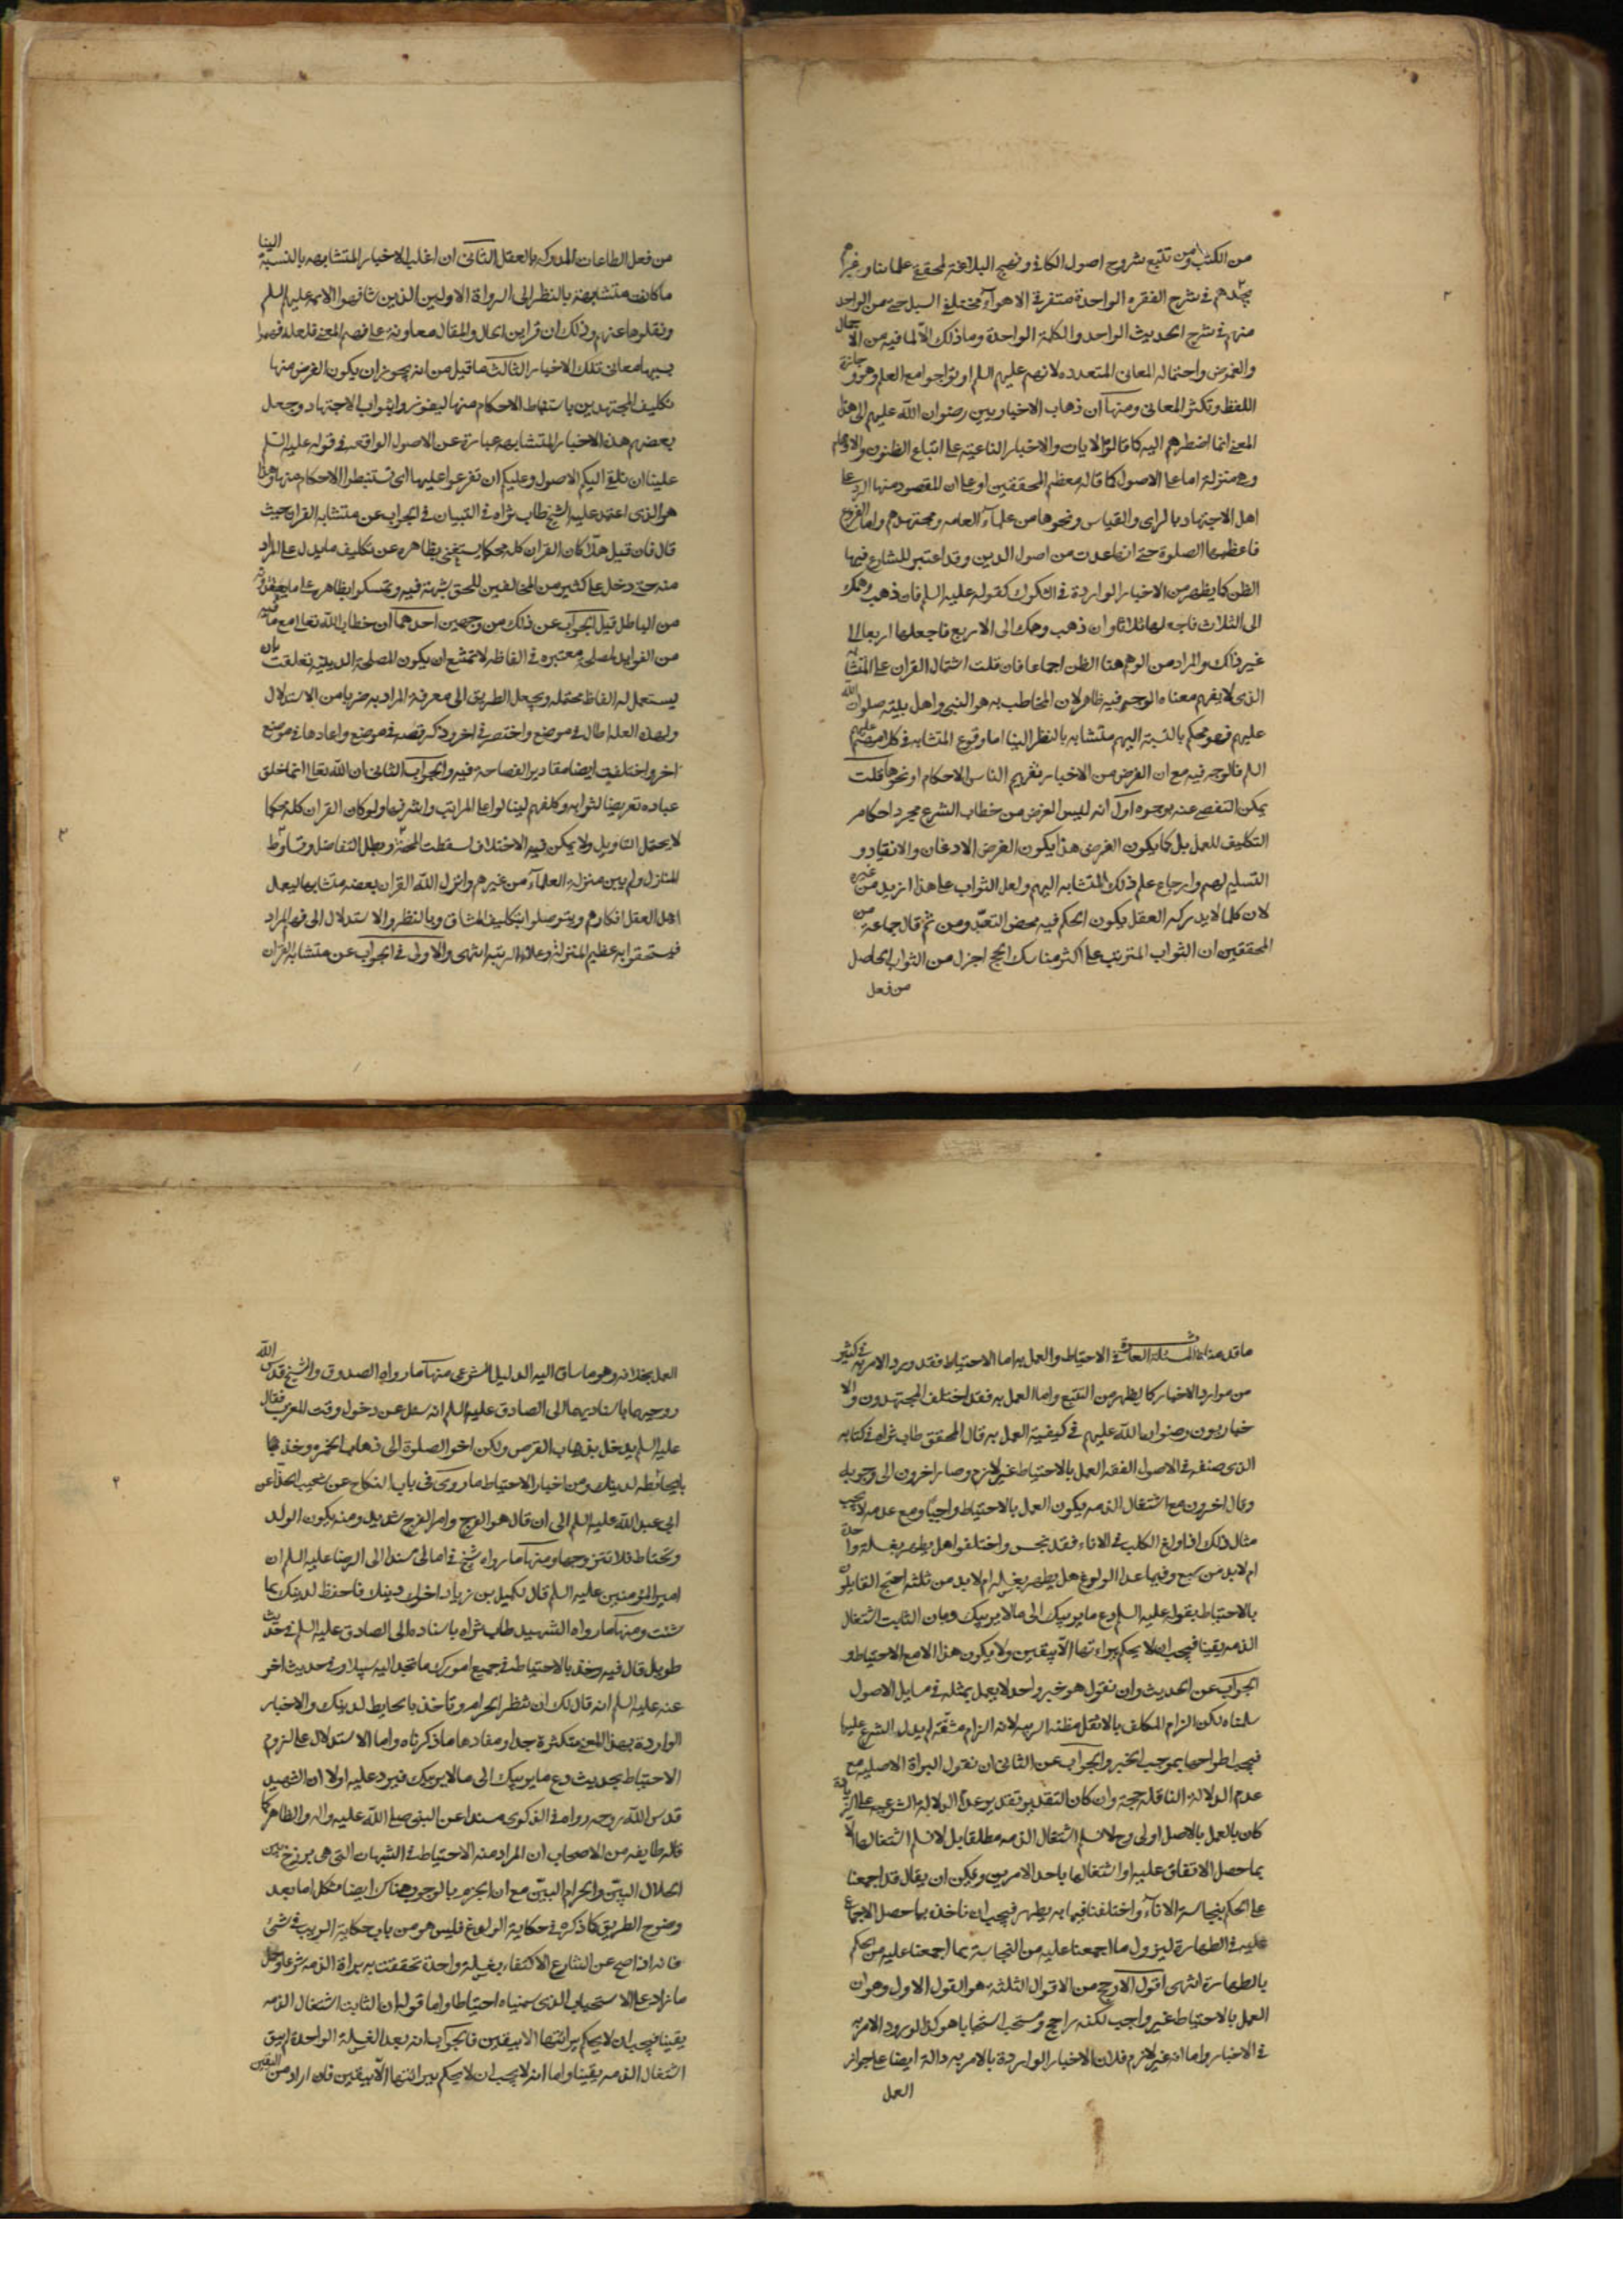 من الكتب ومن تتبع شروح اصول الكافي ونهج البلاغة لمحققي علمائنا وغيرهم
يجدهم في شرح الفقره الواحدة متفرقي الاهواء مختلفي السبل حتى من الواحد
منهم في شرح الحديث الواحد والكلمة الواحدة وما ذلك الّا لما فيه من الاجمال
والغموض واحتماله المعاني المتعدده لانهم عليهم السلم اوتوا جوامع العلم وهو وجازة
اللفظ وتكثر المعاني ومنها ان ذهاب الاخباريين رضوان الله عليهم الى هذا
المعنى انما اضطرهم اليه كما قالوا الايات والاخبار الناعية على اتباع الظنون والاوهام
وهي منزلة اما على الاصول كما قاله معظم المحققين او على ان المقصود منها الرد على
اهل الاجتهاد بالراى والقياس ونحوها من علماء العامه ومجتهديهم واما الفروع
فاعظمها الصلوة حتى انها عدت من اصول الدين وقد اعتبر الشارع فيها
الظن كما يظهر من الاخبار الواردة في الشكوك كقوله عليه السلم فان ذهب وهمك
الى الثلاث فاجعلها ثلاثا وان ذهب وهمك الى الاربع فاجعلها اربعا الى
غير ذلك والمراد من الوهم هنا الظن اجماعا فان قلت اشتمال القران على المتشابه
الذى لا يفهم معناه الوجه فيه ظاهر لان المخاطب به هو النبي واهل بيته صلوات الله
عليهم فهو محكم بالنسبة اليهم متشابه بالنظر الينا اما وقوع المتشابه في كلامهم عليهم
السلم فالوجه فيه مع ان الغرض من الاخبار تفهيم الناس الاحكام او نحوها قلت
يمكن التفصي عنه بوجوه اول انه ليس الغرض من خطاب الشرع مجرد احكام
التكليف للعمل بل كما يكون الغرض هذا يكون الغرض الاذعان والانقياد و
التسليم لهم وارجاع علم ذلك المتشابه اليهم ولعل الثواب على هذا ازيد من غيره
لان كلما لا يدركه العقل يكون الحكم فيه محض التعبد ومن ثم قال جماعة من
المحققين ان الثواب المترتب على اكثر مناسك الحج اجزل من الثواب الحاصل
من فعل
من فعل الطاعات المدركه بالعقل الثاني ان اغلب الاخبار المتشابهه بالنسبة الينا
ما كانت متشابهة بالنظر الى الرواة الاولين الذين شافهوا الائمه عليهم السلم
ونقلوها عنهم وذلك ان قراين الحال والمقال معاونة على فهم المعنى فلعله فهموا
بسببها معاني تلك الاخبار الثالث ما قيل من انه يجوز ان يكون الغرض منها
تكليف المجتهدين باستنباط الاحكام منها ليفوزوا بثواب الاجتهاد وجعل
بعضهم هذه الاخبار المتشابهه عبارة عن الاصول الواقعه في قوله عليه السلم
علينا ان نلقي اليكم الاصول وعليكم ان تفرعوا عليها اى تستنبطوا الاحكام منها وهذا
هو الذى اعتمد عليه الشيخ طاب ثراه في التبيان في الجواب عن متشابه القران حيث
قال فان قيل هلّا كان القران كله محكما يستغنى بظاهره عن تكليف ما يدل على المراد
منه حتى دخل على كثير من المخالفين للحق شبهة فيه وتمسكوا بظاهره على ما يعتقدونه
من الباطل قيل الجواب عن ذلك من وجهين احدهما ان خطاب الله تعالى مع ما فيه
من الفوايد لمصلحة معتبره في الفاظه لا تمتنع ان يكون المصلحة الدينيه تعلقت بان
يستعمل له الفاظ محتمله ويجعل الطريق الى معرفة المراد به ضربا من الاستدلال
ولهذه العلة اطال في موضع واختصر في اخر وذكر قصه في موضع واعادها في موضع
اخر واختلفت ايضا مقادير الفصاحة فيه والجواب الثاني ان الله تعالى انما خلق
عباده تعريضا لثوابه وكلفهم لينالوا اعلا المراتب واشرفها ولو كان القران كله محكما
لا يحتمل التاويل ولا يمكن فيه الاختلاف لسقطت المحنة وبطل التفاضل وتساوت
المنازل ولم يبن منزلة العلماء من غيرهم وانزل الله القران بعضه متشابها ليعمل
اهل العقل افكارهم ويتوصلوا بتكليف المشاق وبالنظر والاستدلال الى فهم المراد
فيستحقوا به عظيم المنزلة وعلو الرتبه انتهى والاولى في الجواب عن متشابه القران
ما قدمناه المسئلة العاشرة في الاحتياط والعمل به اما الاحتياط فقد ورد الامر به في كثير
من موارد الاخبار كما يظهر من التتبع واما العمل به فقد اختلف المجتهدون والا
خباريون رضوان الله عليهم في كيفية العمل به قال المحقق طاب ثراه في كتابه
الذى صنفه في الاصول الفقه العمل بالاحتياط غير لازم وصار اخرون الى وجوبه
وقال اخرون مع اشتغال الذمه يكون العمل بالاحتياط واجبًا ومع عدمه لا يجب
مثال ذلك اذا ولغ الكلب في الاناء فقد نجس واختلفوا هل يطهر بغسلة واحدة
ام لا بد من سبع وفيما عدا الولوغ هل يطهر بغسله ام لا بد من ثلثه احتج القايلون
بالاحتياط بقوله عليه السلم دع ما يريبك الى ما لا يريبك وبان الثابت اشتغال
الذمه يقينا فيجب ان لا يحكم ببراءتها الّا بيقين ولا يكون هذا الا مع الاحتياط و
الجواب عن الحديث وان نقول هو خبر واحد لا يعمل بمثله في مسايل الاصول
سلمناه لكن الزام المكلف بالاثقل مظنه الريبه لانه الزام مشقّة لم يدل الشرع عليها
فيجب اطراحها بموجب الخبر والجواب عن الثاني ان نقول البراة الاصليه مع
عدم الدلالة الناقله حجة وان كان التقدير تقدير عدم الدلالة الشرعيه على الزيادة
كان بالعمل بالاصل اولى وح لا نسلم اشتغال الذمه مطلقا بل لا نسلم اشتغالها الّا
بما حصل الاتفاق عليه او اشتغالها باحد الامرين ويمكن ان يقال قد اجمعنا
على الحكم بنجاسة الاناء واختلفنا فيما به يطهر فيجب ان ناخذ بما حصل الاجماع
عليه في الطهارة ليزول ما اجمعنا عليه من النجاسة بما اجمعنا عليه من الحكم
بالطهارة انتهى اقول الارجح من الاقوال الثلثه هو القول الاول وهو ان
العمل بالاحتياط غير واجب لكنه راجح ومستحب استحبابا هو كذا لورود الامر به
في الاخبار واما انه غير لازم فلان الاخبار الواردة بالامر به دالة ايضا على جواز
العمل
العمل بخلافه وهو ما ساق اليه الدليل الشرعى منها ما رواه الصدوق والشيخ قدس الله
روحيهما باسناديهما الى الصادق عليه السلم انه سئل عن دخول وقت المغرب فقال
عليه السلم يدخل بذهاب القرص ولكن اخر الصلوة الى ذهاب الحمره وخذ بها
بالحائطه لدينك ومن اخبار الاحتياط ما روى في باب النكاح عن شعيب الحداد عن
ابي عبد الله عليه السلم الى ان قال هو الفرج وامر الفرج شديد ومنه يكون الولد
ونحتاط فلا تتزوجها ومنها ما رواه الشيخ في امالى مسندا الى الرضا عليه السلم ان
امير المؤمنين عليه السلم قال لكميل بن زياد اخوك دينك فاحفظ لدينك بما
شئت ومنها ما رواه الشهيد طاب ثراه باسناده الى الصادق عليه السلم في حديث
طويل قال فيه وخذ بالاحتياط في جميع امورك ما تجد اليه سبيلا وفي حديث اخر
عنه عليه السلم انه قال لك ان تنظر الحرام وتاخذ بالحايط لدينك والاخبار
الواردة بهذا المعنى متكثرة جدا ومفادها ما ذكرناه واما الاستدلال على لزوم
الاحتياط بحديث دع ما يريبك الى ما لا يريبك فيرد عليه اولا ان الشهيد
قدس الله روحه رواه في الذكرى مسندا عن النبي صلى الله عليه واله والظاهر كما
قاله طايفه من الاصحاب ان المراد منه الاحتياط في الشبهات التي هي برزخ بين
الحلال البيّن والحرام البيّن مع ان الجزم بالوجوب هناك ايضا مشكل اما بعد
وضوح الطريق كما ذكره في حكاية الولوغ فليس هو من باب حكاية الريب في شئ
فانه اذا صح عن الشارع الاكتفاء بغسلة واحدة تحققت به براة الذمه شرعا وحمل
ما زاد على الاستحباب الذى سميناه احتياطا واما قوله ان الثابت اشتغال الذمه
يقينا فيجب ان لا يحكم ببرائتها الا بيقين فالجواب انه بعد الغسلة الواحدة لم يبق
اشتغال الذمه يقينا واما انه لا يجب ان لا يحكم ببرائتها الّا بيقين فان اراد من اليقين